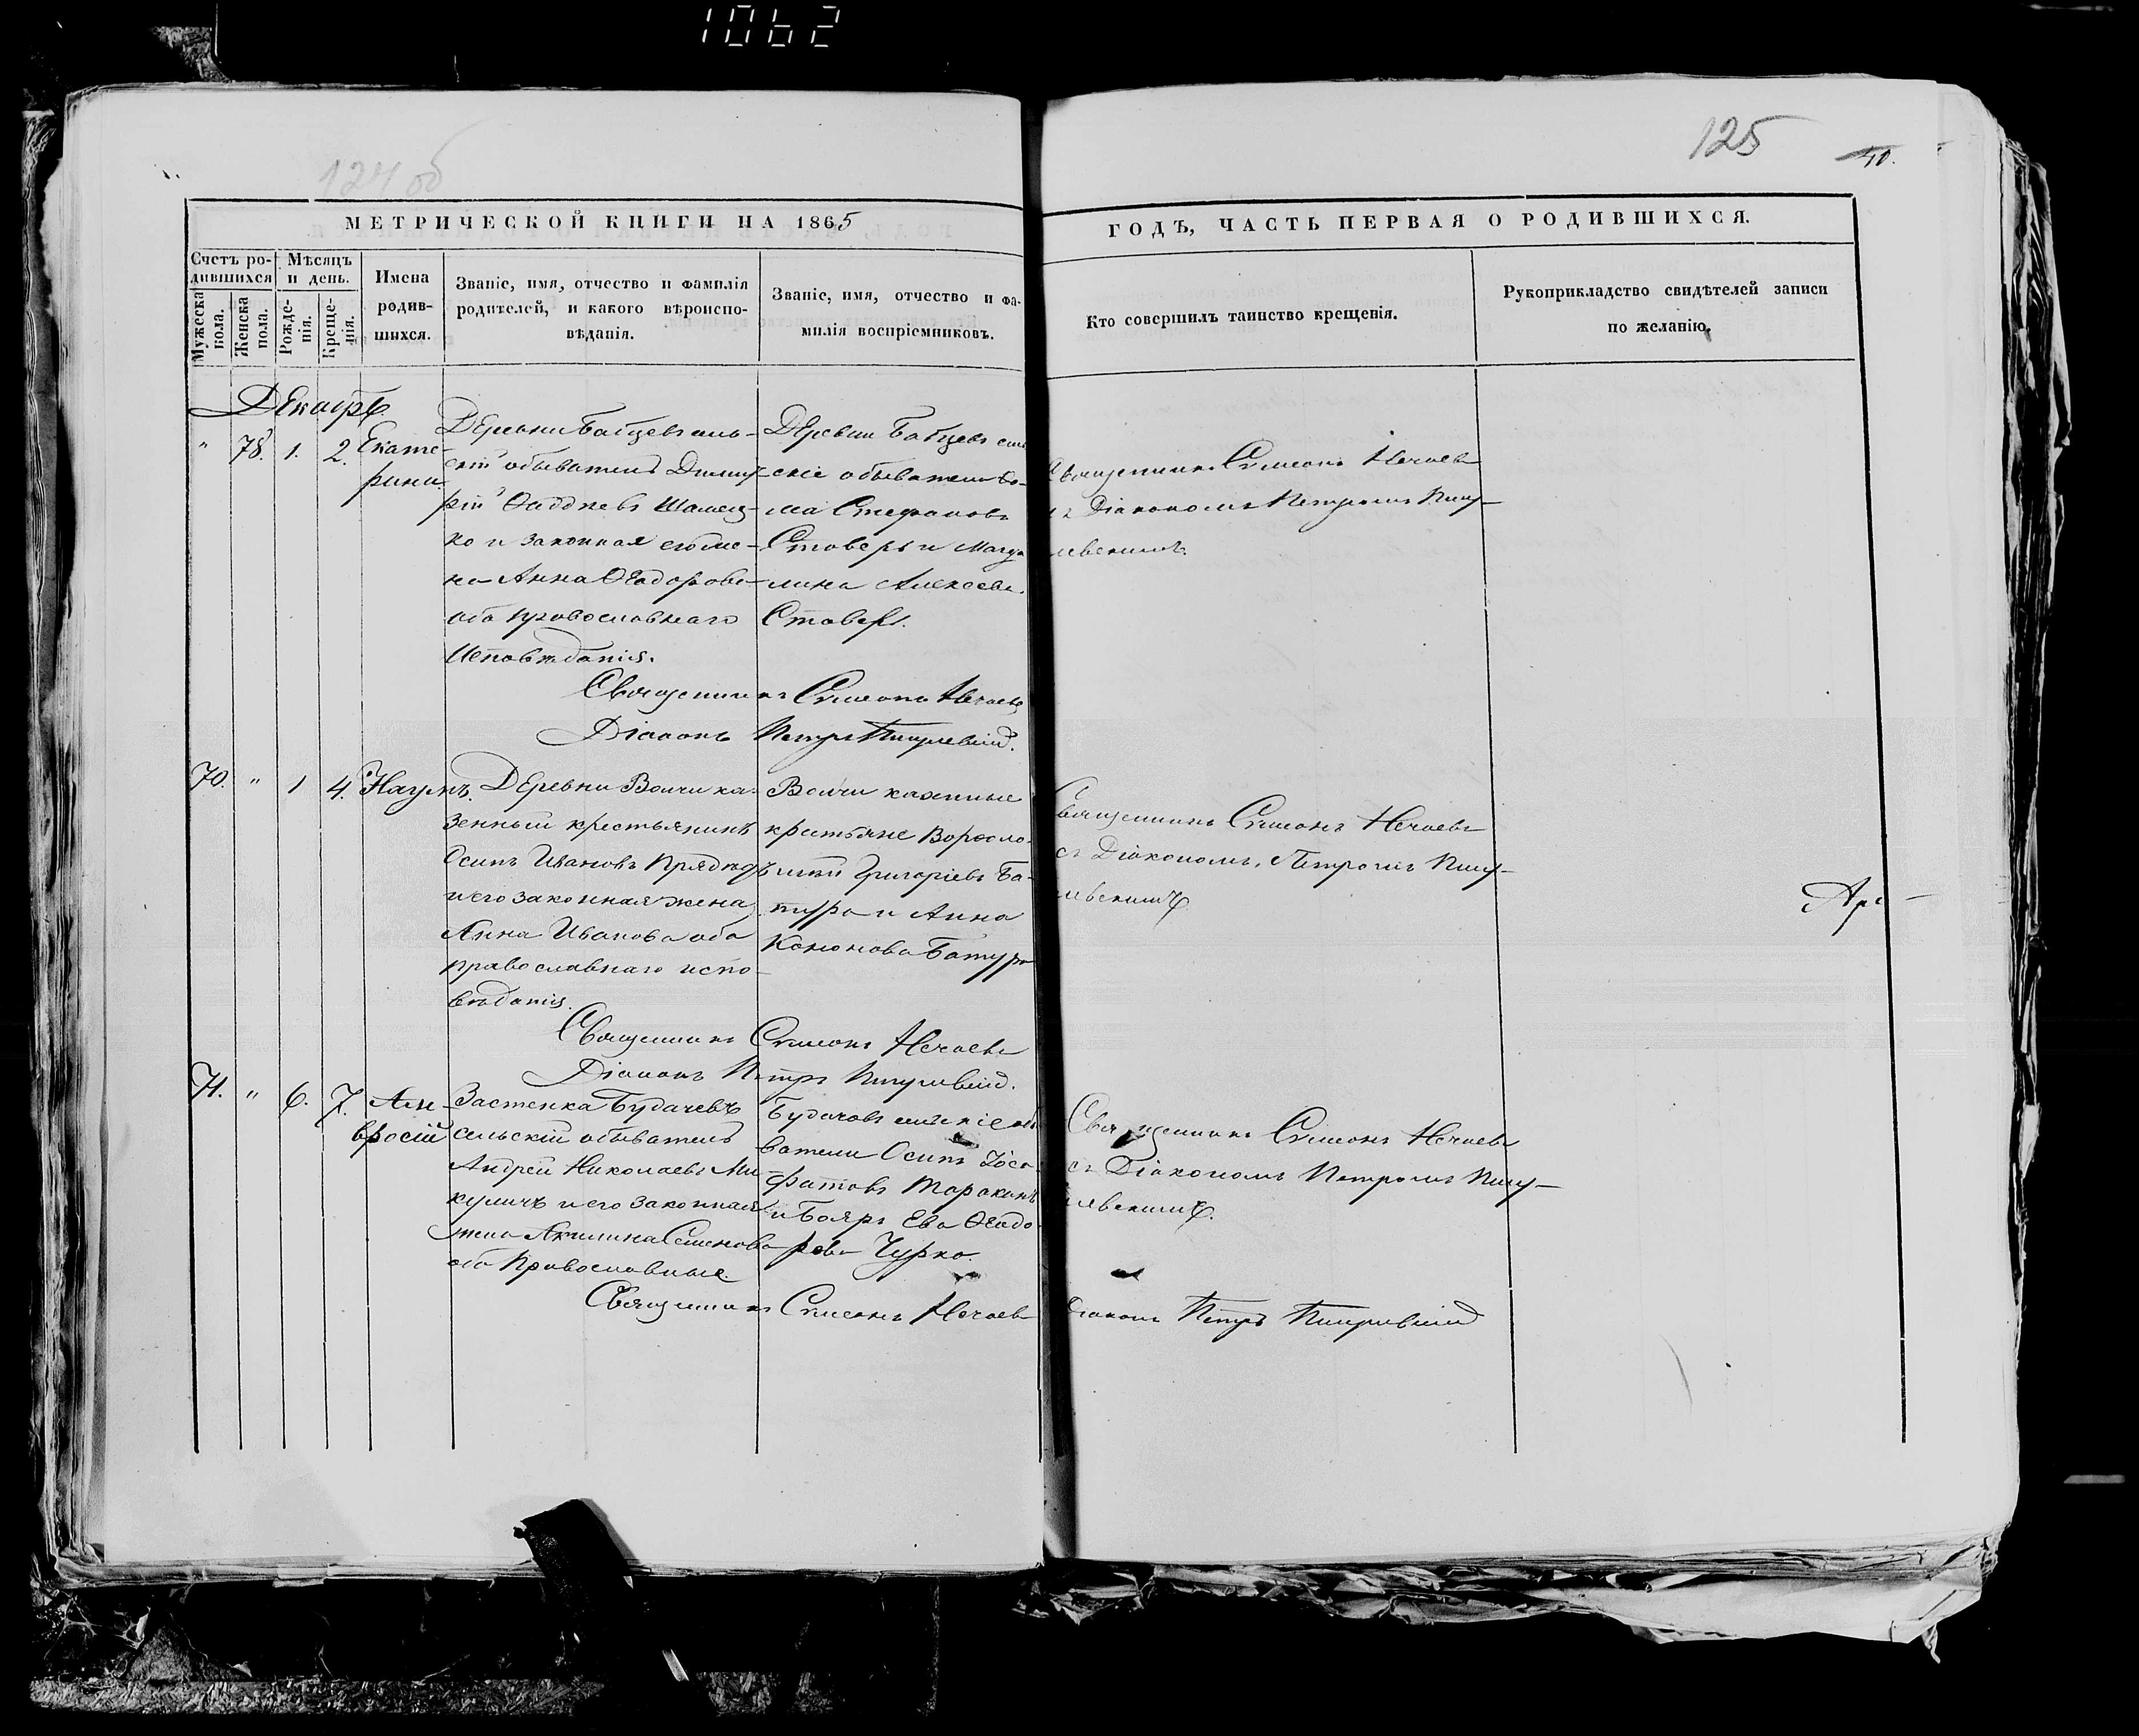 1062
124 об
125
МЕТРИЧЕСКОЙ КНИГИ НА 1865
ГОДЪ, ЧАСТЬ ПЕРВАЯ О РОДИВШИХСЯ.
Счетъ ро-
дившихся
Мужеска
пола.
Женска
пола.
Мѣсяцъ
и день.
Рожде-
нія.
Креще-
нія.
Имена
родив-
шихся.
Званіе, имя, отчество и фамилія
родителей, и какого вѣроиспо-
вѣданія.
Званіе, имя, отчество и фа-
милія воспріемниковъ.
Кто совершилъ таинство крещенія.
Рукоприкладство свидѣтелей записи
по желанію.
Декабрь
" 78. 1. 2. Екате-
рина.
Деревни Бабцевъ сель-
скій обыватель Дими-
рій Фаддеевъ
ко и законная его же-
на Анна Ѳеодорова
оба православнаго
исповѣданія.
Деревни Бабцевъ сель
скіе обыватели Ѳо-
ма Стефановъ
Стаберъ и Магда
лина Алексѣева
Стаберъ.
Священникъ Симеонъ Нечаевъ
съ Діакономъ Петромъ
Священникъ Симеонъ Нечаевъ
Діаконъ Петръ
70. " 1 4. Наумъ.
Деревни Волчи ка-
зенный крестьянинъ
Осипъ Ивановъ
и его законная жена
Анна Иванова оба
православнаго испо-
вѣданія.
Волчи казенные
крестьяне
Григоріевъ Ба-
тура и Анна
Кононова Батура
Священникъ Симеонъ Нечаевъ
съ Діакономъ Петромъ
Священникъ Симеонъ Нечаевъ
Діаконъ Петръ
71. " 6. 7. Ам-
вросій
Застенка Будачевъ
сельскій обыватель
Андрей Николаевъ Ми-
куличъ и его законная
жена Акилина Семенова
оба Православные.
Будачовъ сельскіе обы
ватели Осипъ Іоса-
фатовъ Тараканъ
и Бояръ Ева Ѳеодо-
рова Чурко.
Священникъ Симеонъ Нечаевъ
съ Діакономъ Петромъ
Священникъ Симеонъ Нечаевъ
Діаконъ Петръ